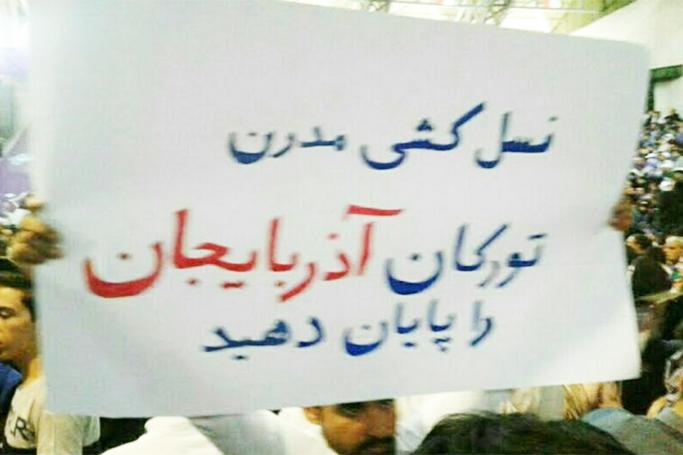 نسل کشی مدرن
تورکان آذربایجان
را پایان دهید